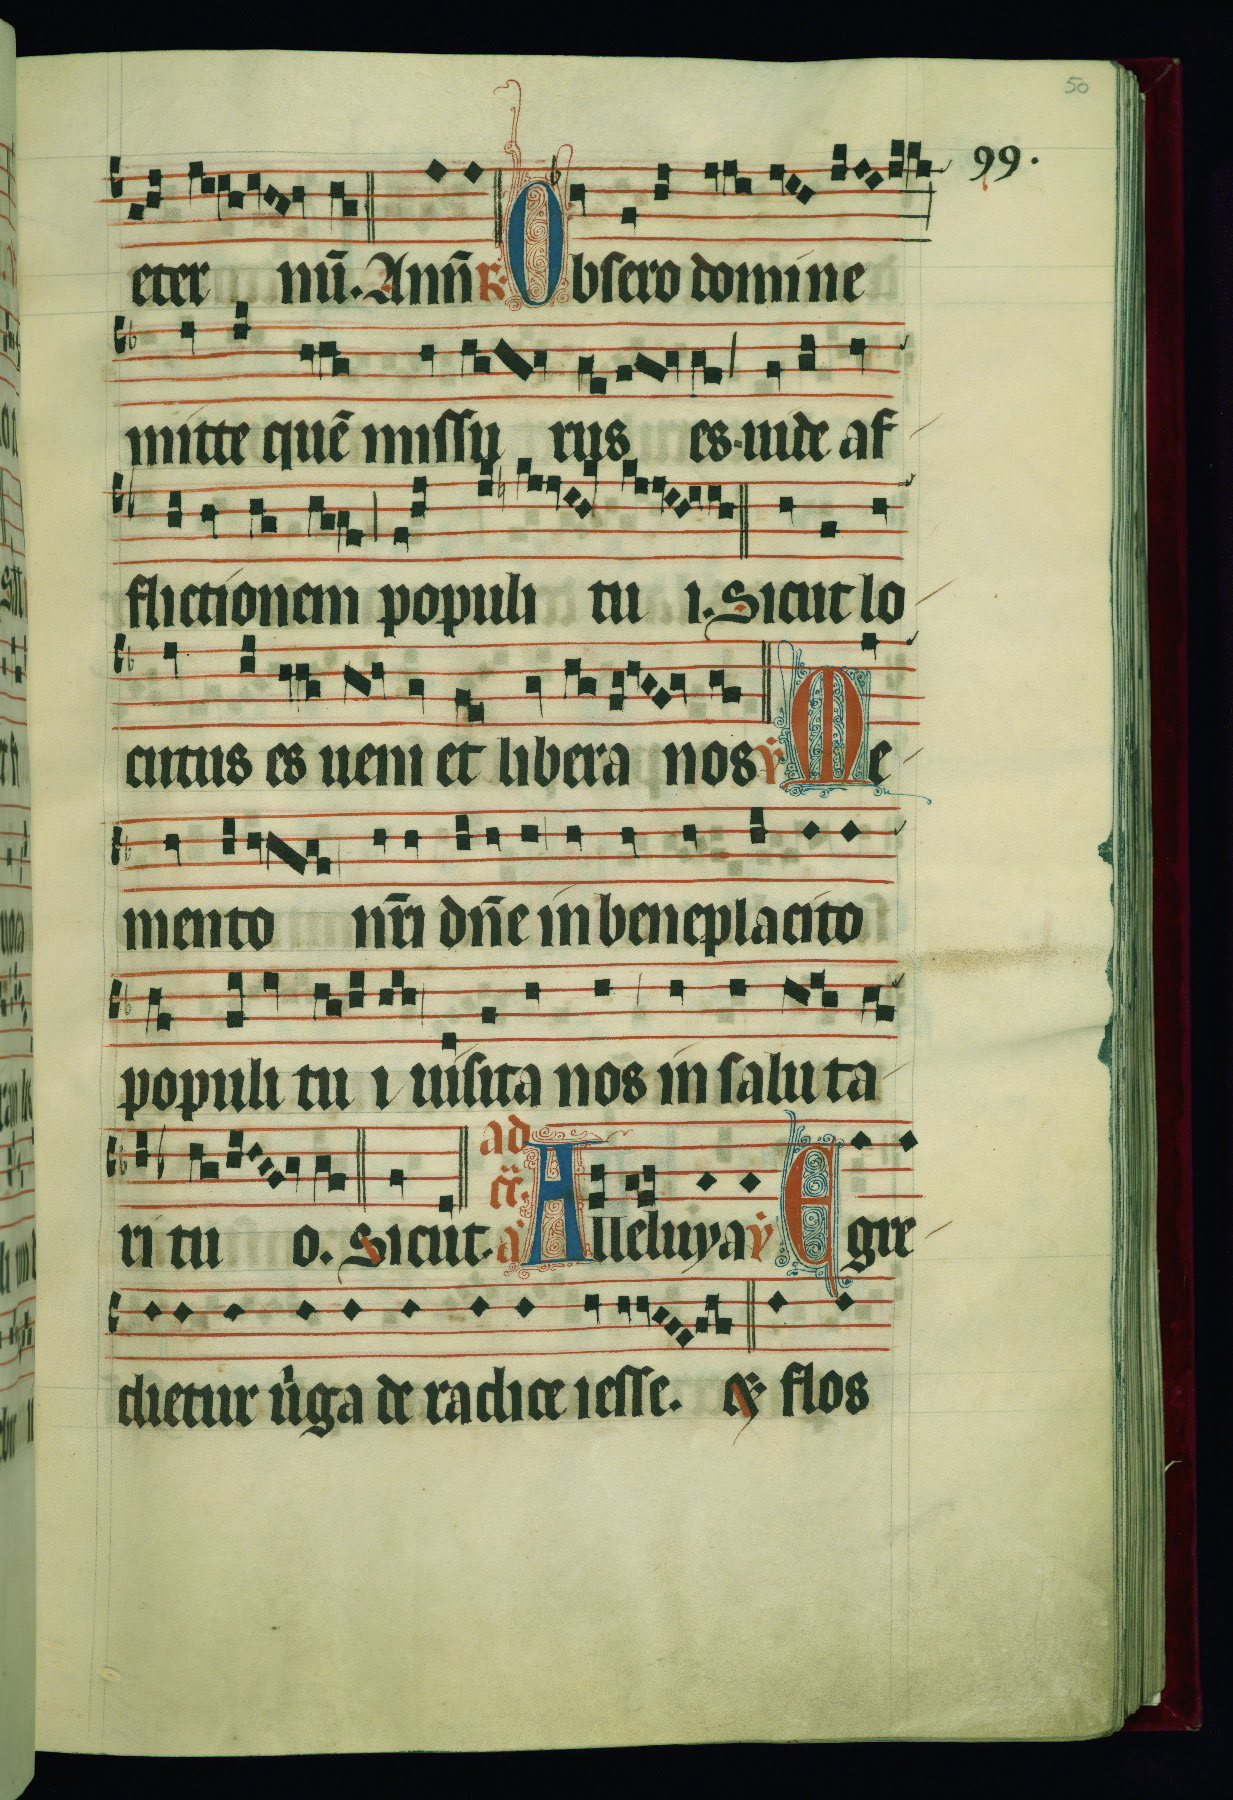 50
99.
eter nū. Annū R. Obsero domine
mitte quē missu rus es. uide af
flictionem populi tu i. Sicut lo
cutus es ueni et libera nos V̄ Me
mento nr̄i dn̄e in beneplacito
populi tu i uisita nos in saluta
ad
cā.
ri tu o. Sicut. a Alleluya V̄ Egre
dietur ūga de radice iesse. & flos